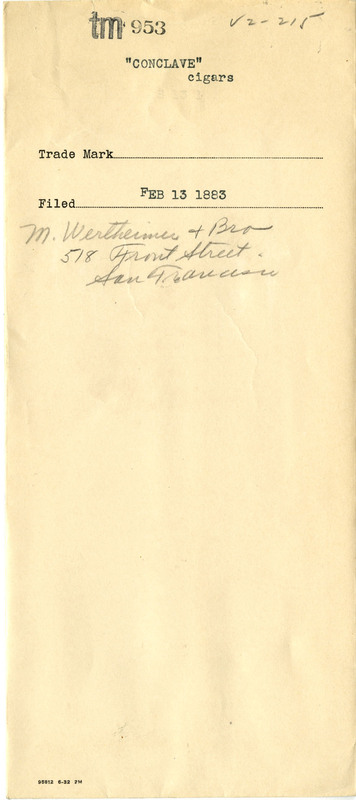 tm 953 V2-215
"CONCLAVE"
cigars
Trade Mark
Filed FEB 13 1883
M. Wertheimer & Bro
518 Front Street.
San Francisco
95812 6-32 2M